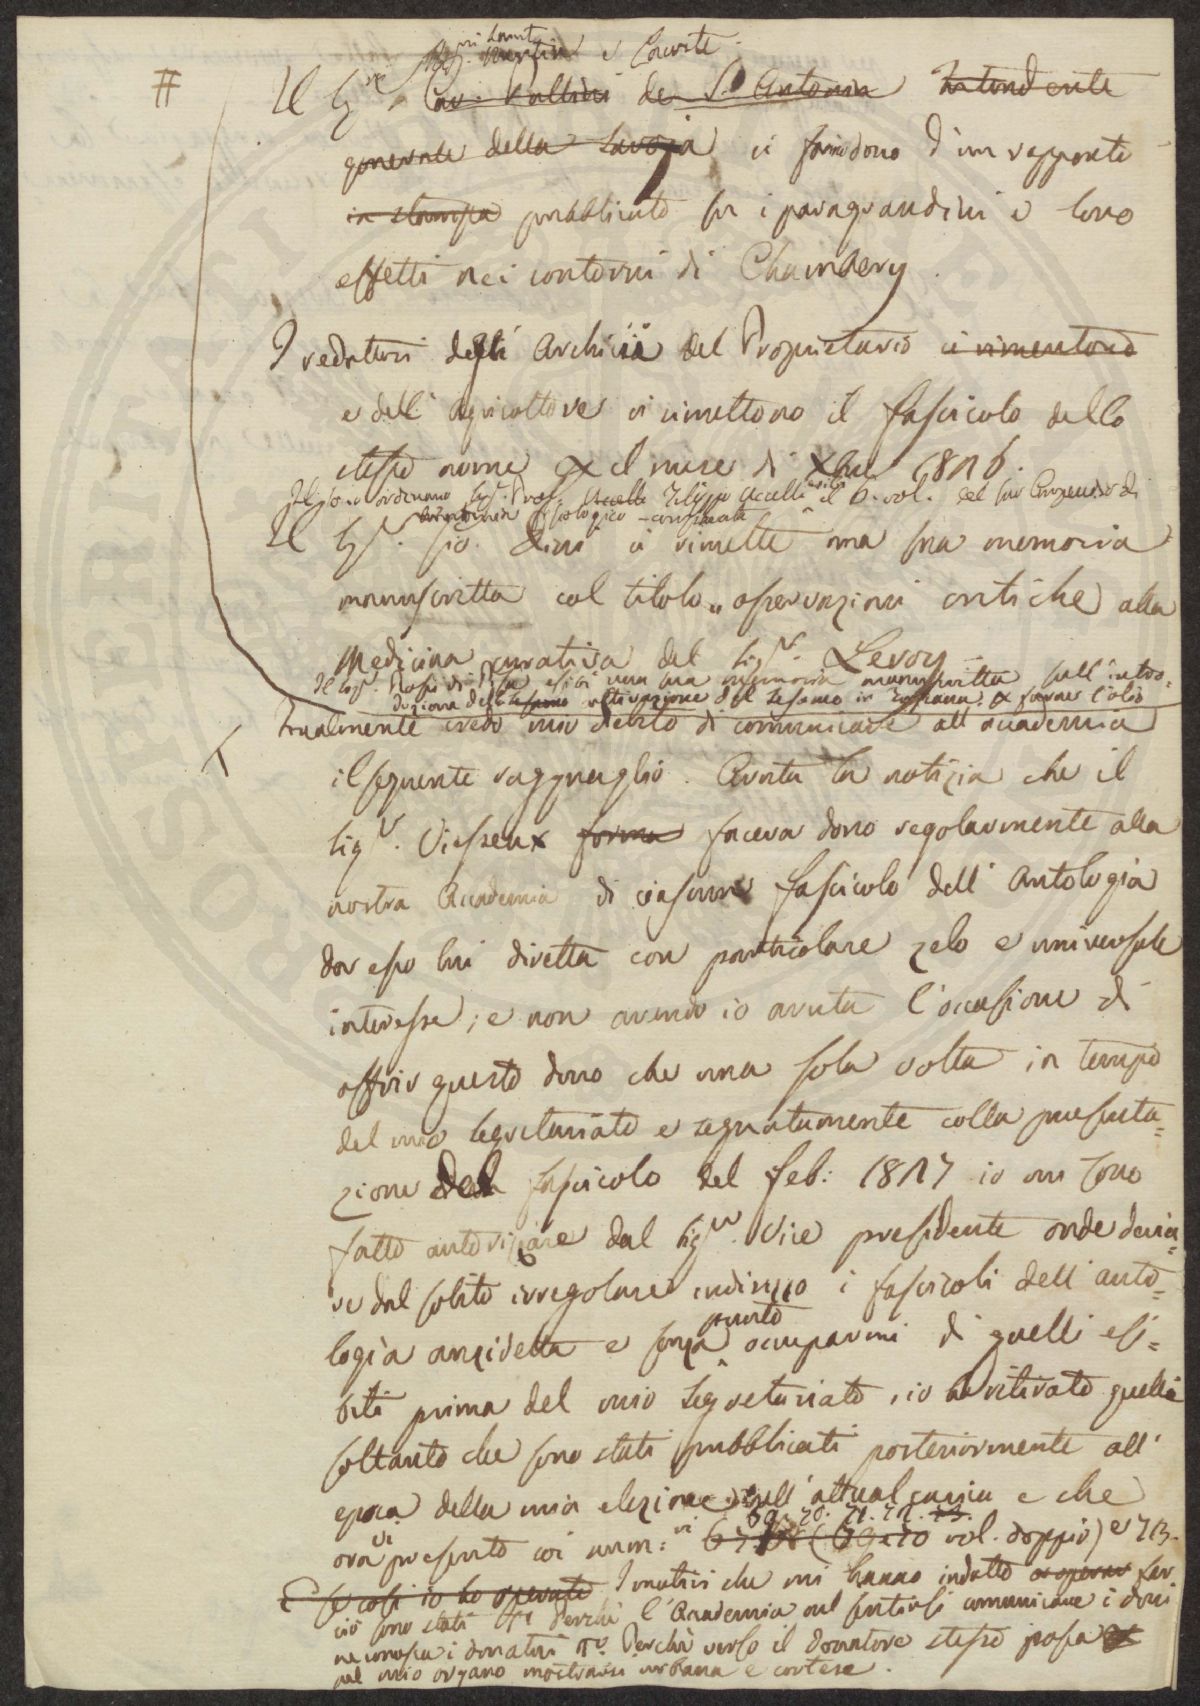 #
Il Sigre Cav. Pullini de S. Antonin Intendente
generale della Savoja ci fanno dono d'un rapporto
in stampa pubblicato su i paragrandini e loro
effetti nei contorni di Chambery.
I redattori degli Archivii del Proprietario ci rimettono
e dell'Agricoltore ci rimettono il fascicolo dello
stesso nome x il mese di Xbre 1826.
Sigr. Prof. Filippo Uccelli il 6. vol. del suo Compendio di
fisiologico-comparata
Il Sigr. Gio. Dini ci rimette una sua memoria
manuscritta col titolo „ osservazioni critiche alla
Medicina curativa del Sigr. Leroy
Il Sigr. esibì una sua memoria manuscritta sull'intro=
duzione della coltivazione del Sesamo in Toscana x farne l'olio
Finalmente credo mio debito di comunicare all'accademia
il seguente ragguaglio. Avuta la notizia che il
Sigr. Viesseux forma faceva dono regolarmente alla
nostra Accademia di ciascun fascicolo dell'Antologia
da esso lui diretta con particolare zelo e universale
interesse; e non avendo io avuta l'occasione di
offrir questo dono che una sola volta in tempo
del mio segretariato e segnatamente colla presenta=
zione del fascicolo del feb: 1827 io mi sono
fatto autorizzare dal Sigr. Vice presidente onde devia=
re dal solito irregolare indirizzo i fascicoli dell'anto=
logia anzidetta e senza punto occuparmi di quelli esi=
biti prima del mio segretariato, io ho ritirato quelli
soltanto che sono stati pubblicati posteriormente all'
epoca della mia elezione all'attual carica e che
69. 70. 71. 72. 73.
ora vi presento coi num: (69 e 70 vol. doppio) e 73.
E se così io ho operato I motivi che mi hanno indotto a operar far
ciò sono stati Io Perchè l'Accademia nel sentirsi comunicare i doni
ne conosca i donatori IIo. Perchè verso il donatore stesso possa
pel mio organo mostrarsi urbana e cortese.